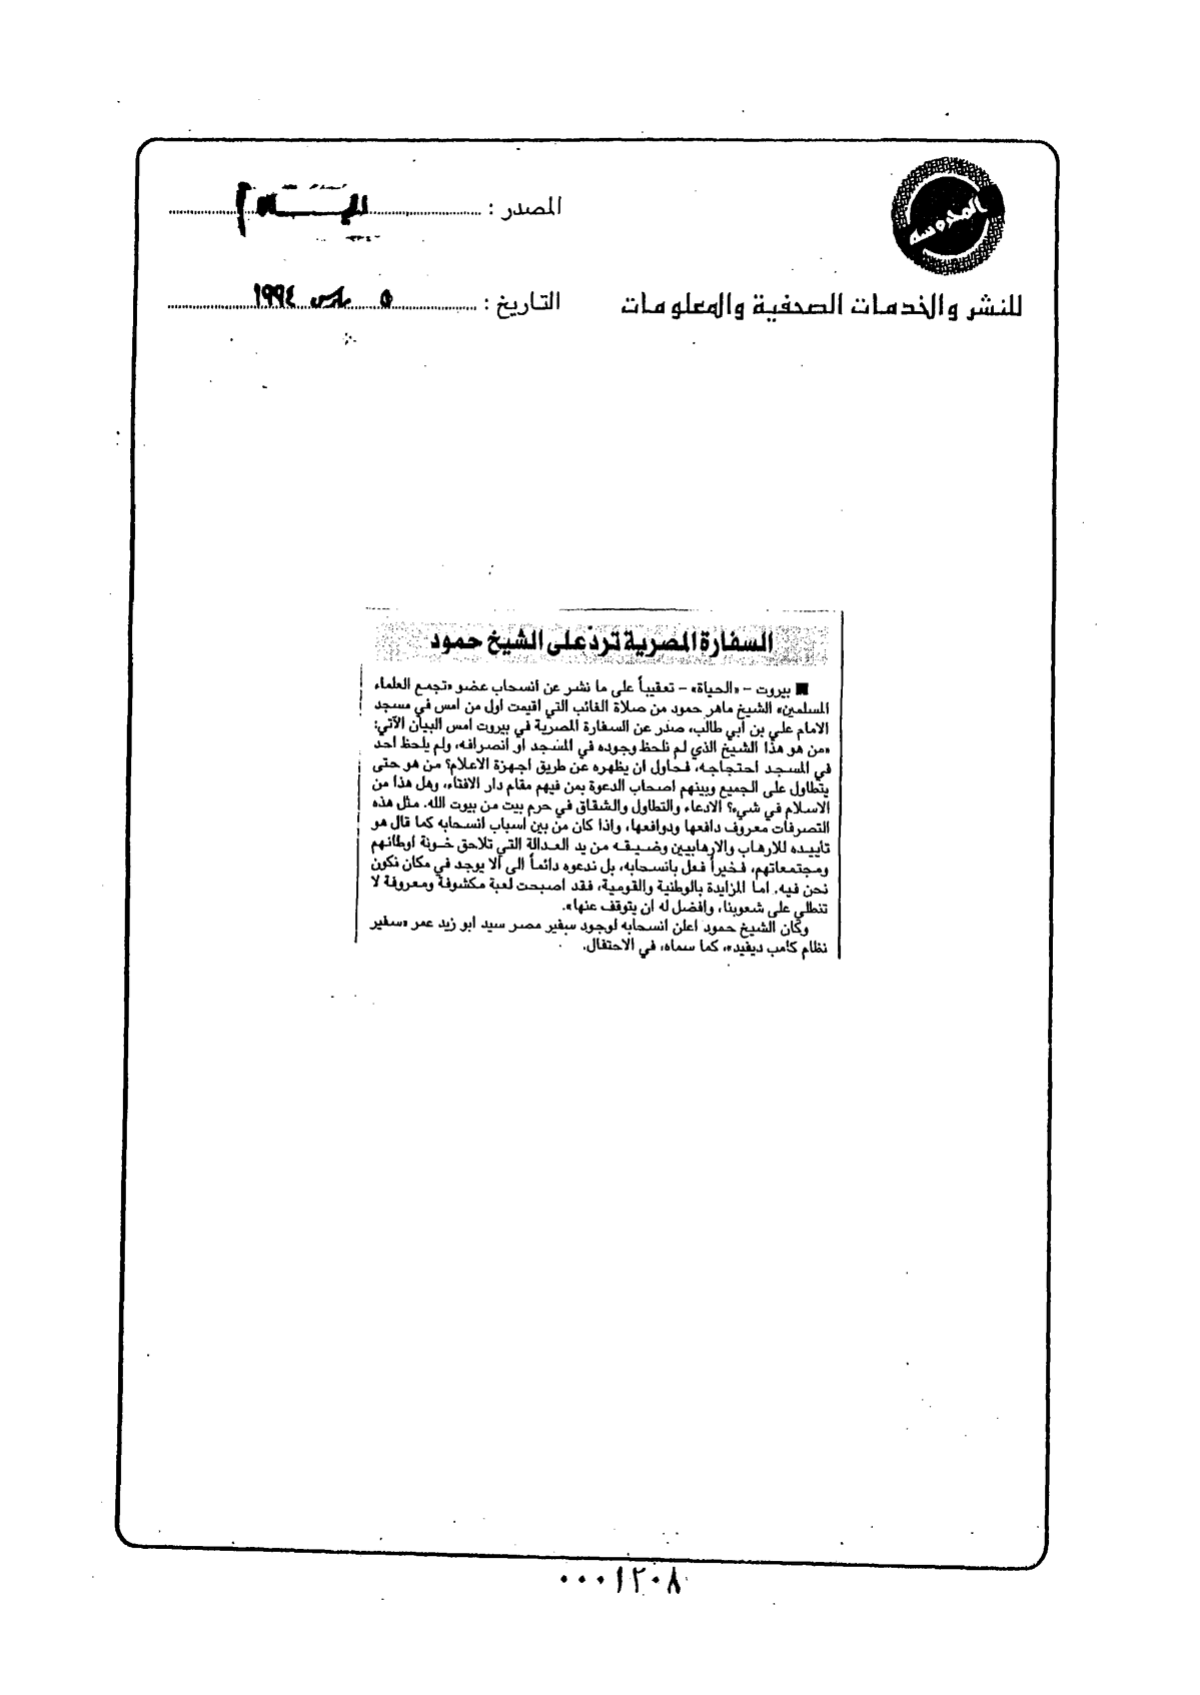 المحروسه
للنشر والخدمات الصحفية والمعلومات
المصدر :
التاريخ : ٥ مارس ١٩٩٤
السفارة المصرية تردّ على الشيخ حمود
■ بيروت – «الحياة» – تعقيباً على ما نشر عن انسحاب عضو «تجمع العلماء
المسلمين» الشيخ ماهر حمود من صلاة الغائب التي اقيمت اول من امس في مسجد
الامام علي بن أبي طالب، صدر عن السفارة المصرية في بيروت امس البيان الآتي:
«من هو هذا الشيخ الذي لم نلحظ وجوده في المسجد او انصرافه، ولم يلحظ احد
في المسجد احتجاجه، فحاول ان يظهره عن طريق اجهزة الاعلام؟ من هو حتى
يتطاول على الجميع وبينهم اصحاب الدعوة بمن فيهم مقام دار الافتاء، وهل هذا من
الاسلام في شيء؟ الادعاء والتطاول والشقاق في حرم بيت من بيوت الله. مثل هذه
التصرفات معروف دافعها ودوافعها، واذا كان من بين اسباب انسحابه كما قال هو
تأييده للارهاب والارهابيين وضيقه من يد العدالة التي تلاحق خونة أوطانهم
ومجتمعاتهم، فخيراً فعل بانسحابه، بل ندعوه دائماً الى ألا يوجد في مكان نكون
نحن فيه. اما المزايدة بالوطنية والقومية، فقد اصبحت لعبة مكشوفة ومعروفة لا
تنطلي على شعوبنا، وافضل له ان يتوقف عنها».
وكان الشيخ حمود اعلن انسحابه لوجود سفير مصر سيد ابو زيد عمر «سفير
نظام كامب ديفيد»، كما سماه، في الاحتفال.
٠٠٠١٢٠٨